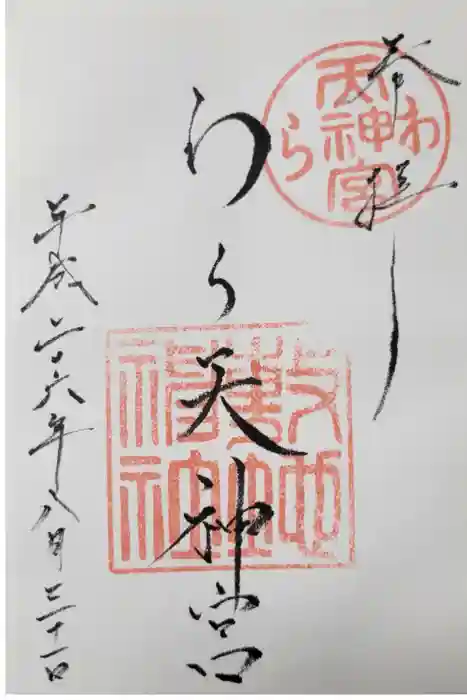 奉拝
わら
天神宮
わら天神宮
平成二十六年八月三十一日